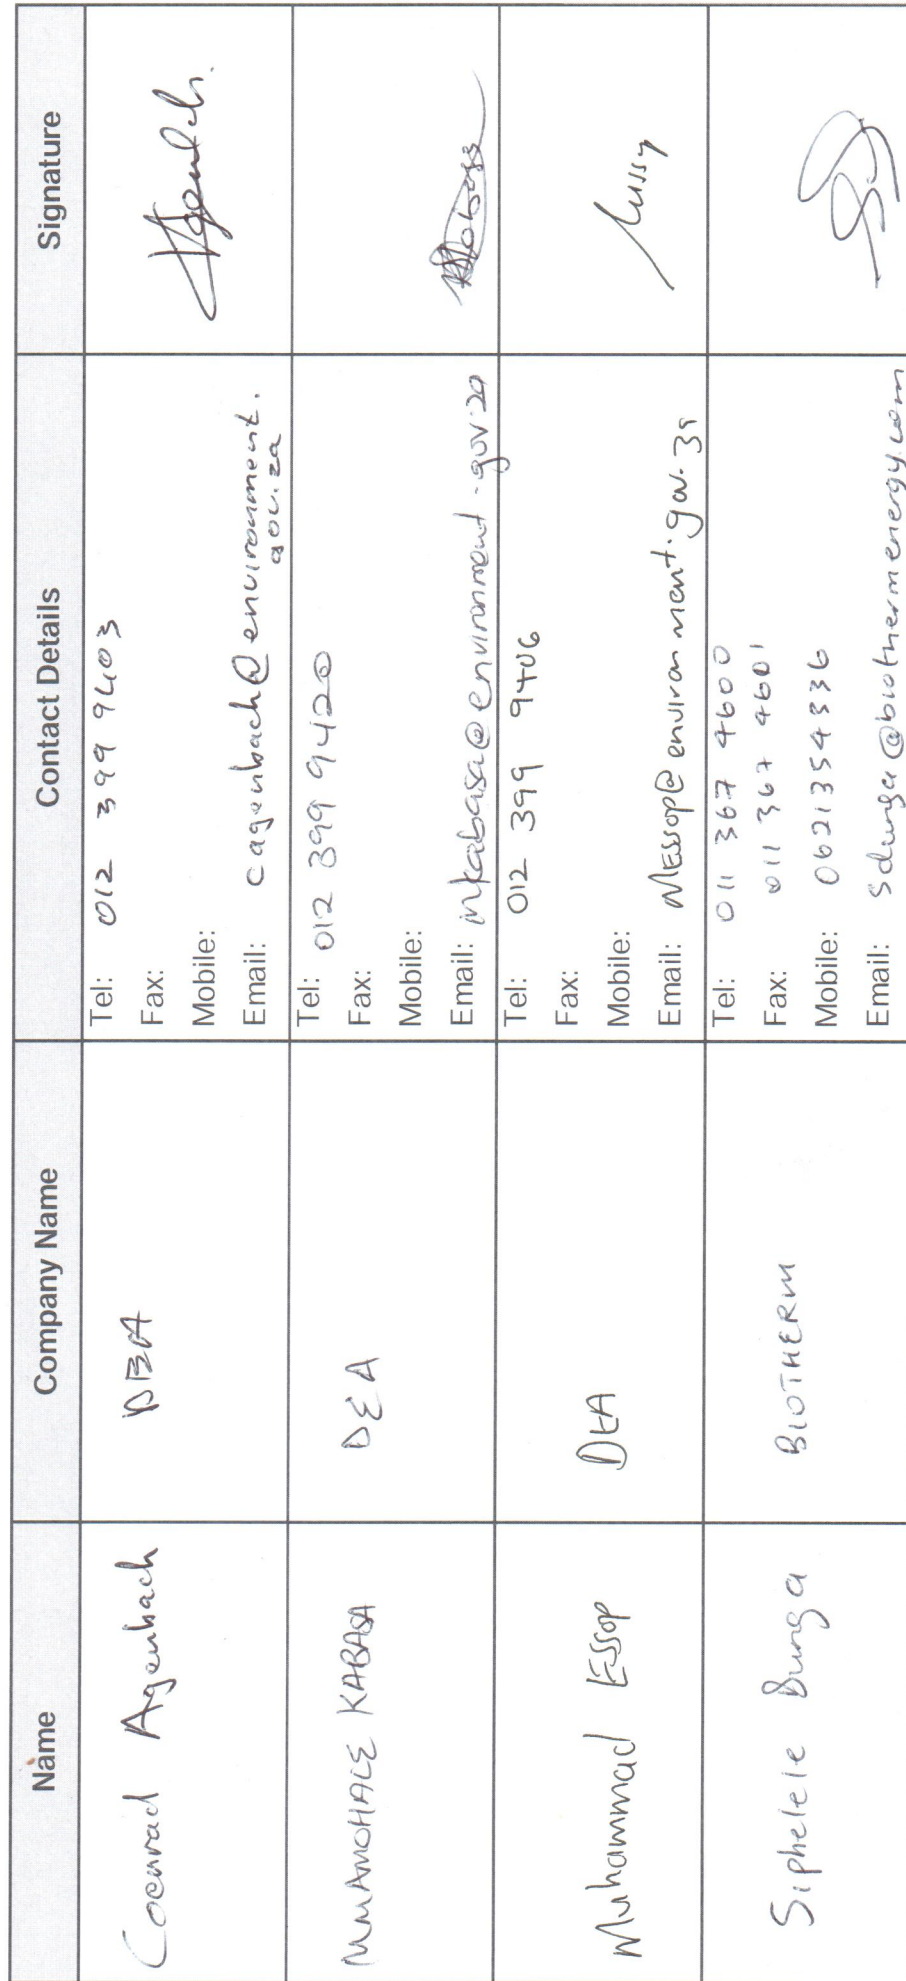 Name Company Name Contact Details Signature
Coenrad Agenbach DEA Tel: 012 399 9403
Fax:
Mobile:
Email: cagenbach@environment.
gov.za
MMAMOHALE KABASA DEA Tel: 012 399 9420
Fax:
Mobile:
Email: mkabasa@environment.gov.za
Muhammad Essop DEA Tel: 012 399 9406
Fax:
Mobile:
Email: MEssop@environment.gov.za
Siphelele Dunga BIOTHERM Tel: 011 367 4600
Fax: 011 367 4601
Mobile: 0621354336
Email: Sdunga@biothermenergy.com